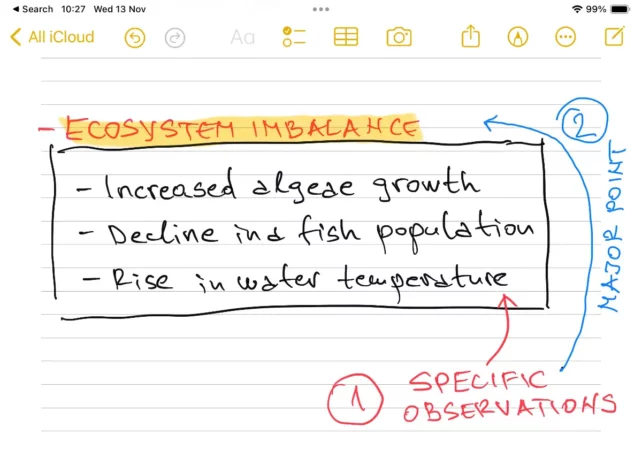 Search 10:27 Wed 13 Nov 99%
All iCloud Aa
- ECOSYSTEM IMBALANCE
- Increased algeae growth
- Decline ind fish population
- Rise in water temperature
2
MAJOR POINT
1 SPECIFIC
OBSERVATIONS